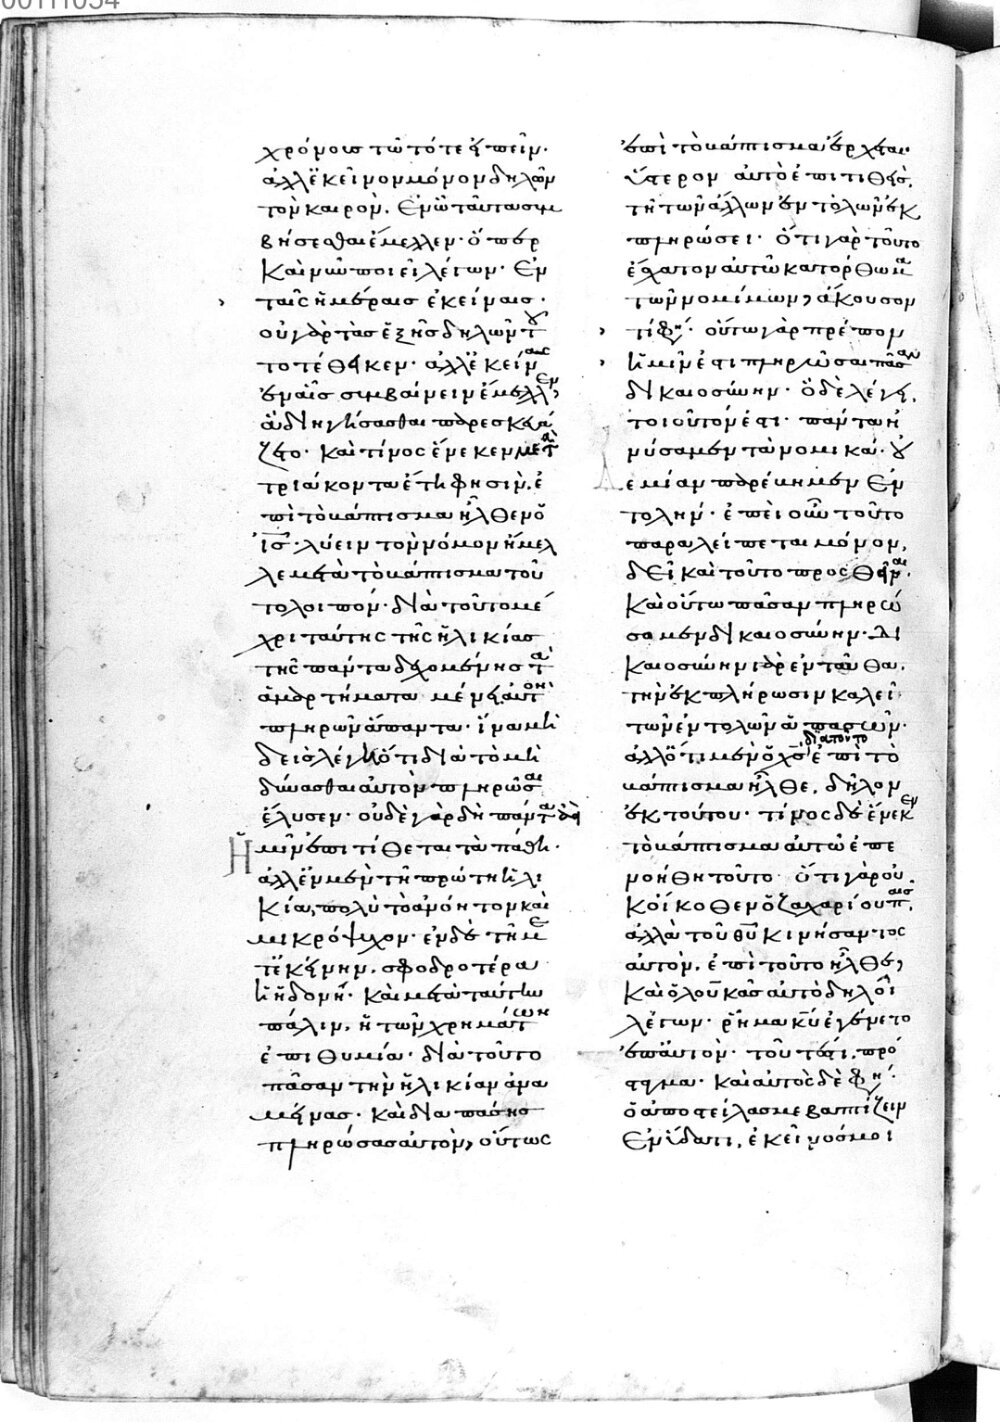 χρόνοις τῶ τότε εἰπεῖν.
ἀλλ' ἐκεῖνον μόνον δηλῶν
τὸν καιρὸν, ἐν ᾧ ταῦτα συμ
βήσεσθαι ἔμελλεν. ὅπερ
καὶ νῦν ποιεῖ λέγων. Ἐν
ταῖς ἡμέραις ἐκείναις.
οὐ γὰρ τὰς ἑξῆς δηλῶν τοῦ
το τέθεικεν. ἀλλ' ἐκείνας
ἐν αἷς συμβαίνειν ἔμελλεν,
ἃ διηγήσασθαι παρεσκευά
ζετο. καὶ τίνος ἕνεκεν μετὰ
τριάκοντα ἔτη φησὶν, ἐ
πὶ τὸ βάπτισμα ἦλθεν ὁ
ις. λύειν τὸν νόμον ἤμελ
λε μετὰ τὸ βάπτισμα τοῦ
το λοιπόν. διὰ τοῦτο μέ
χρι ταύτης τῆς ἡλικίας
τῆς πάντα δεχομένης τὰ
ἁμαρτήματα μένει αὐτὸν
πληρῶν ἅπαντα. ἵνα μὴ
δεὶς λέγη ὅτι διὰ τὸ μὴ
δύνασθαι αὐτὸν πληρῶσαι
ἔλυσεν. οὐδὲ γὰρ δὴ πάντα ἀεὶ
ἡμῖν ἐπιτίθεται τὰ πάθη.
ἀλλ' ἐν μὲν τῆ πρώτη ἡλι
κία, πολὺ τὸ ἀνόητον καὶ
μικρόψυχον. ἐν δὲ τῆ με
τ' ἐκείνην, σφοδροτέρα
ἡ ἡδονή. καὶ μετὰ ταύτην
πάλιν, ἡ τῶν χρημάτων
ἐπιθυμία. διὰ τοῦτο
πᾶσαν τὴν ἡλικίαν ἀνα
μείνας. καὶ διὰ πάσης
πληρώσας αὐτὸν, οὕτως
ἐπὶ τὸ βάπτισμα ἔρχεται
ὕστερον αὐτὸ ἐπιτιθεὶς,
τῆ τῶν ἄλλων ἐντολῶν ἐκ
πληρώσει. ὅτι γὰρ τοῦτο
ἔσχατον αὐτῶ κατόρθωμα
τῶν νομίμων, ἄκουσον
τί φησί. οὕτω γὰρ πρέπον
ἡμῖν ἐστι πληρῶσαι πᾶσαν
δικαιοσύνην. ὃ δὲ λέγει,
τοιοῦτόν ἐστι. πάντα ἠ
νύσαμεν τὰ νομικά. οὐ
δεμίαν παρέβημεν ἐν
τολήν. ἐπεὶ οὖν τοῦτο
παραλείπεται μόνον,
δεῖ καὶ τοῦτο προσθεῖναι.
καὶ οὕτω πᾶσαν πληρώ
σομεν δικαιοσύνην. δι
καιοσύνην γὰρ ἐνταῦθα,
τὴν ἐκπλήρωσιν καλεῖ
τῶν ἐντολῶν ἁπασῶν.
ἀλλ' ὅτι μὲν ὁ χς διὰ τοῦτο ἐπὶ τὸ
βάπτισμα ἦλθε, δῆλον
ἐκ τούτου. τίνος δὲ ἕνεκεν
τὸ βάπτισμα αὐτῶ ἐπε
νοήθη τοῦτο. ὅτι γὰρ οὐ
κ οἴκοθεν ὁ ζαχαρίου παῖς,
ἀλλὰ τοῦ θυ κινήσαντος
αὐτὸν, ἐπὶ τοῦτο ἦλθε,
καὶ ὁ λουκᾶς αὐτὸ δηλοῖ
λέγων. ῥῆμα κυ ἐγένετο
ἐπ' αὐτόν. τοῦτ' ἔστι, πρό
σταγμα. καὶ αὐτὸς δὲ φησί.
ὁ ἀποστείλας με βαπτίζειν
ἐν ὕδατι, ἐκεῖνος μοι